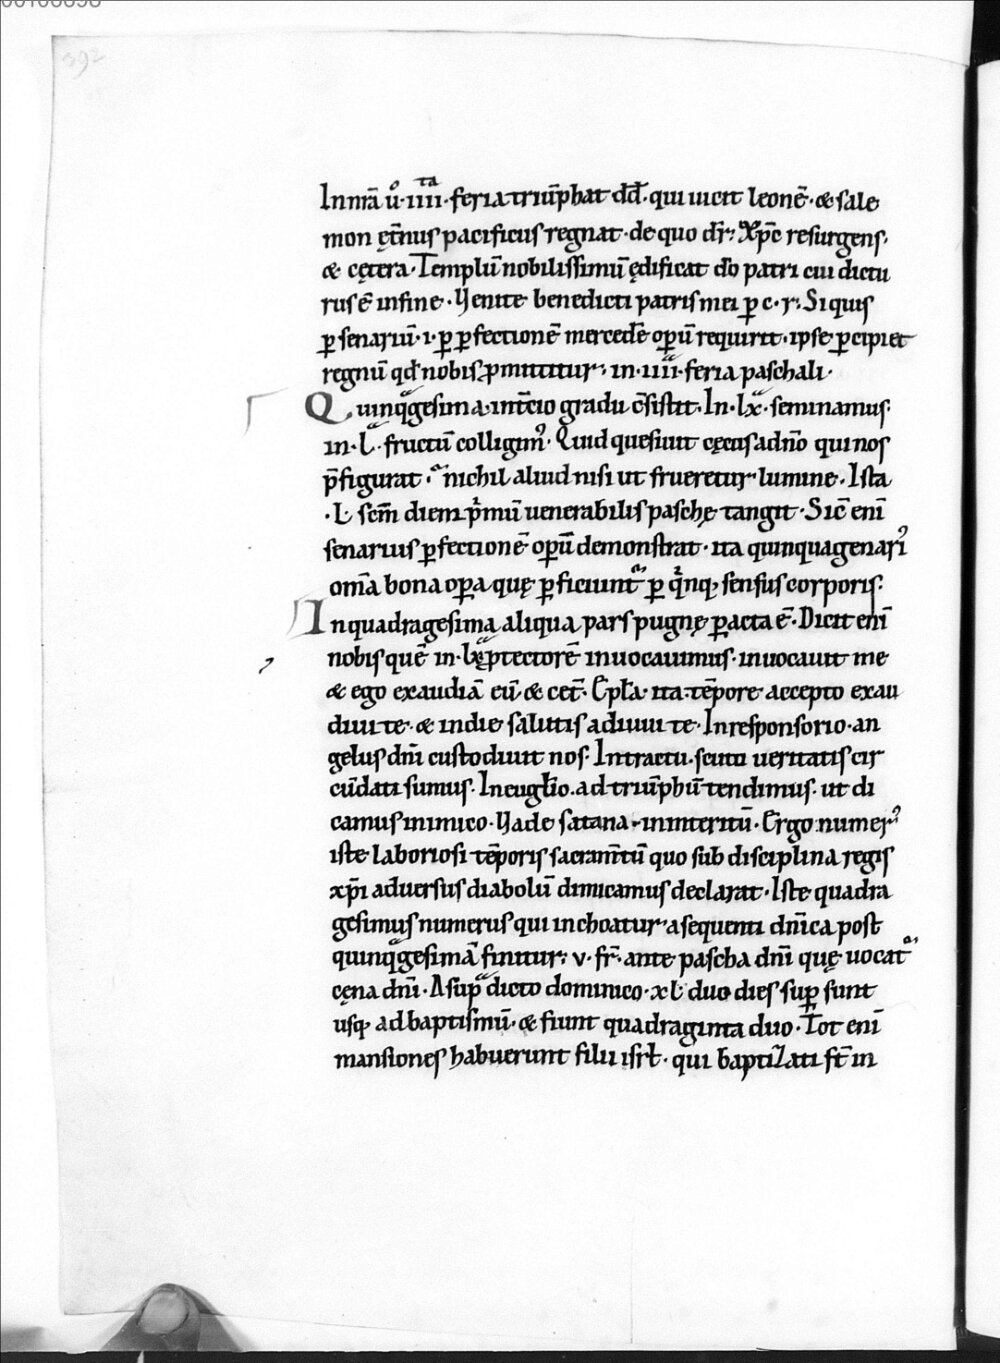 392
In n̄rā ū·iiii^ta·feria triūphat dd̄·qui uicit leonē·& sale
mon ęt̄nus pacificus regnat·de quo dr̄· Xp̄c resurgens·
& cętera·Templū nobilissimū ędificat dō patri cui dictu
rus ē in fine·Venite benedicti patris mei p̱ c·r· Siquis
p̱ senariū·i·p̱ p̱fectionē mercedē op̱ū requirit·ipse p̱cipiet
regnū qd̄ nobis p̄mittitur·in·iiii^a·feria paschali·
Quinq^agesima·int̄cio gradu c̄sistit·In·lx^a·seminamus·
in·L^a·fructū colligim᾿·Quid quesiuit cęcus a dn̄o qui nos
p̄figurat·^a nichil aliud nisi ut frueretur lumine·Ista
·L· scm̄ diem p^imū uenerabilis paschę tangit·Sic̄ eni̅
senarius p̱fectionē op̱ū demonstrat·ita quinquagenari᾿
om̄a bona op̱a quę p̱ficiunt^a p̱ q^inq; sensus corporis·
In quadragesima aliqua pars pugnę p̱acta ē·Dicit eni̅
nobis quē in·lx^a p̄tectorē inuocauimus·inuocauit me
& ego exaudiā eū·& cet̄·Epl̄a·ita·tēpore accepto exau
diui te·& in die salutis adiuui te·In responsorio·an
gelus dn̄i custodiuit nos·In tractu·scuto ueritatis cir
cūdati sumus·In eugl̄io·ad triūphū tendimus·ut di
camus inimico·Vade satana·in interitū·Ergo numer᾿
iste laboriosi tēporis sacram̄tū quo sub disciplina regis
xp̄i aduersus diabolū dimicamus declarat·Iste quadra
gesimus numerus qui inchoatur a sequenti dn̄ica post
quinq^agesimā finitur·v·fr̄·ante pascha dn̄i quę uocat^a
cęna dn̄i·A sup^a dicto dominico·xl· duo dies sup̱ sunt
usq; ad baptismū·& fiunt quadraginta duo·Tot eni̅
mansiones habuerunt filii isrl̄·qui baptizati st̄ in